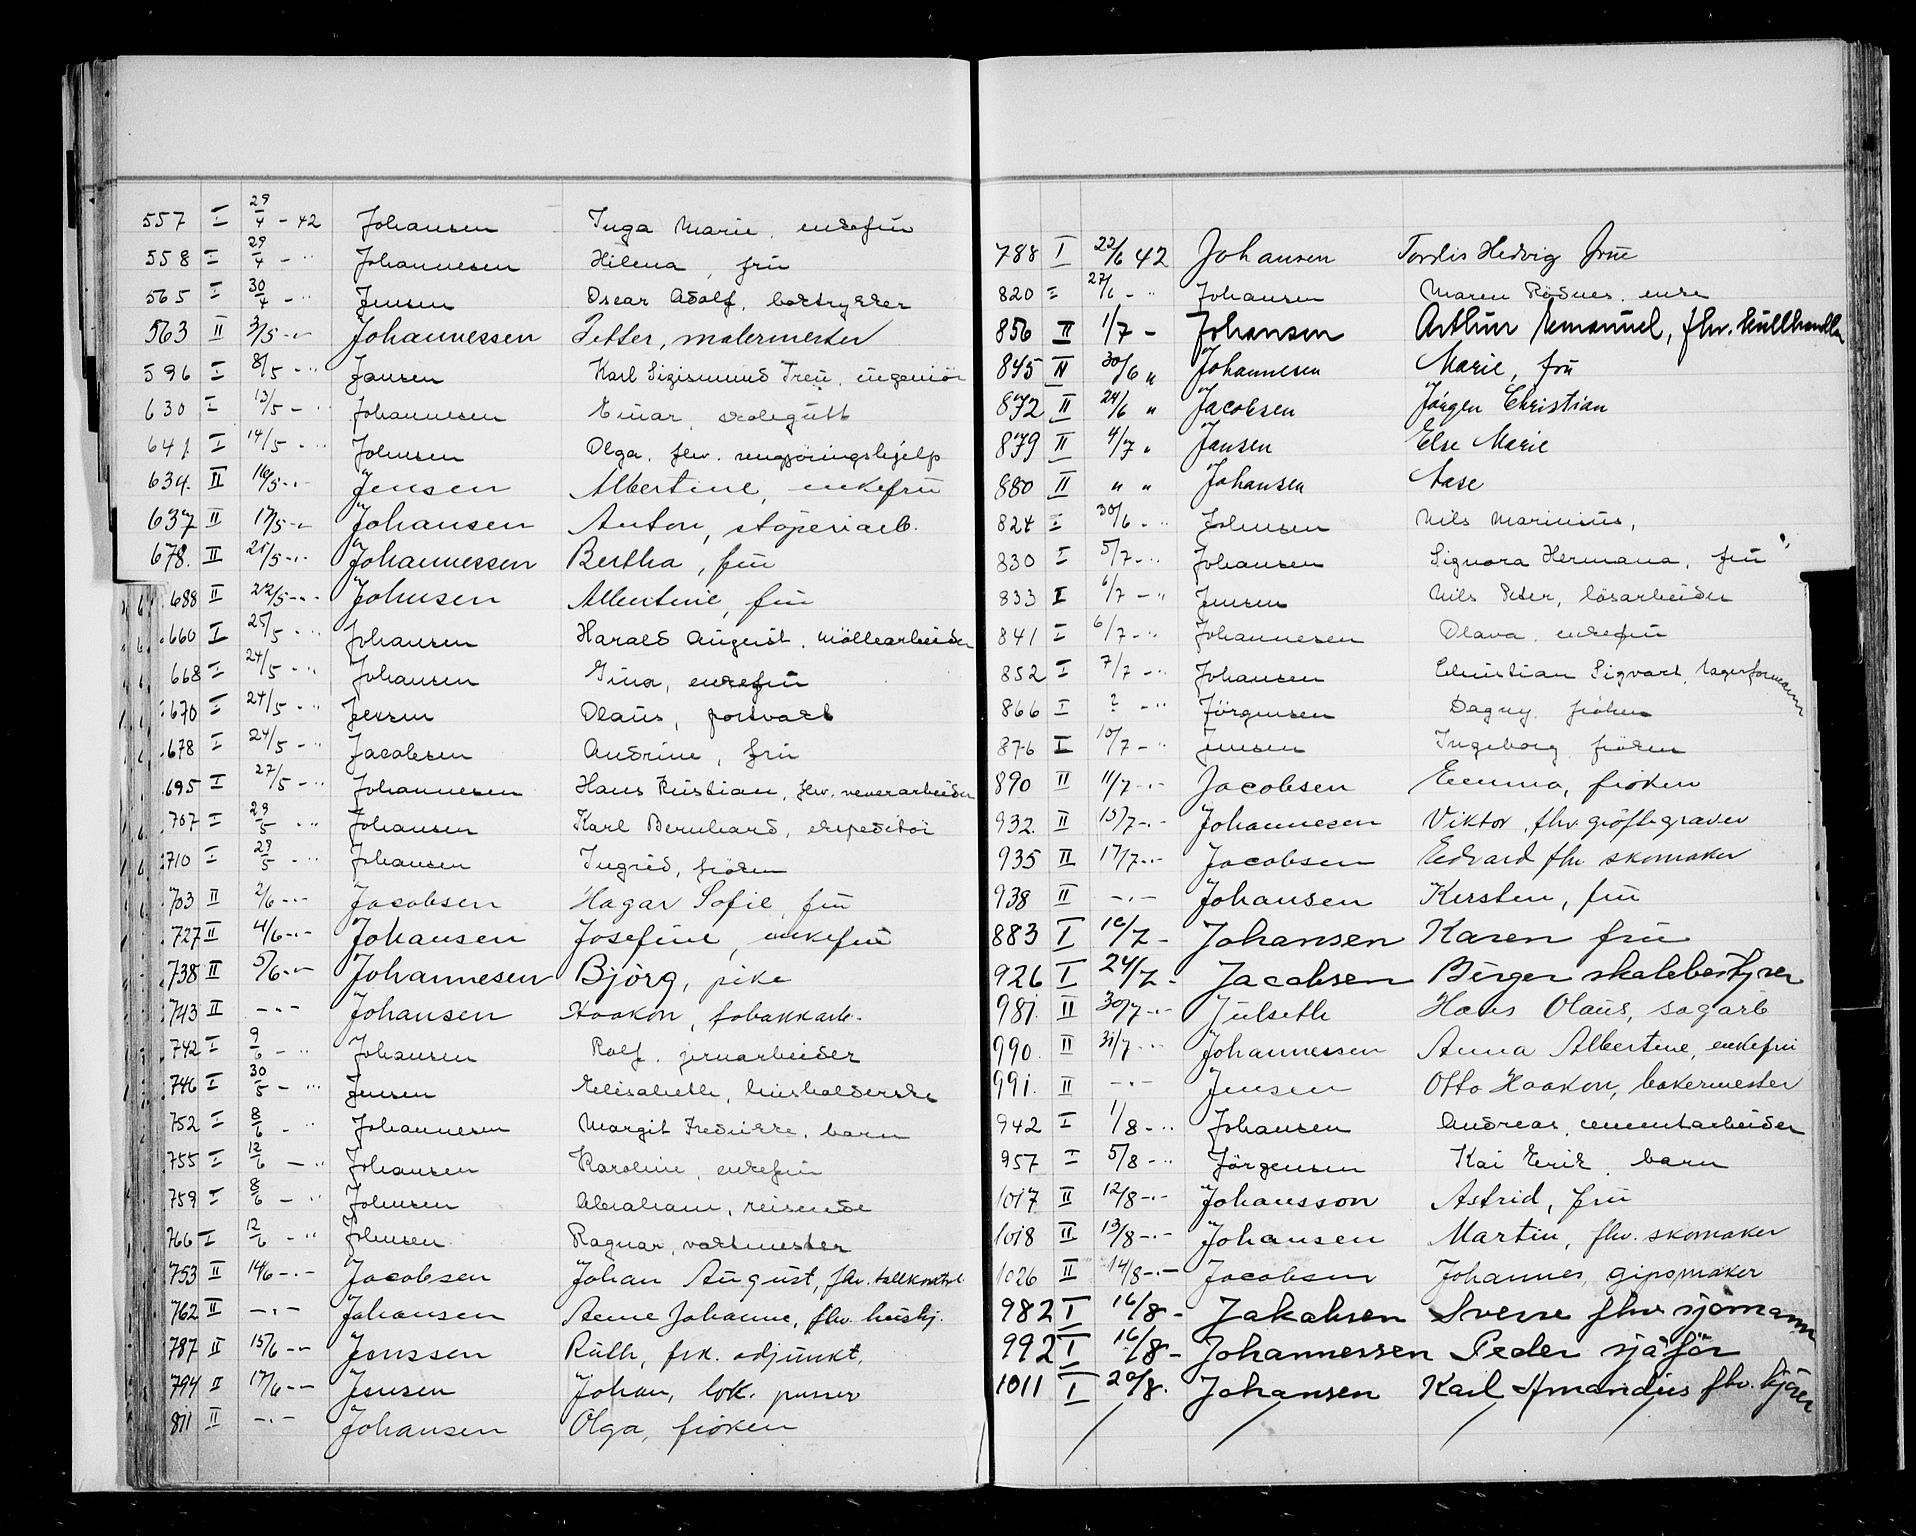 557 I 29/4 - 42 Johansen Inga Marie, enkefru
558 I 29/4 - " Johannesen Hilena, fru
565 I 30/4 - " Jensen Oscar Adolf, boktrykker
563 II 3/5 - " - Johannessen Petter, malermester
596 I 8/5 - " Jansen Karl Sigismund Treu, ingeniör
630 I 13/5 - " Johannesen Einar, skolegutt
641 I 14/5 - " Johnsen Olga, fhv. rengjöringshjelp
634. II 16/5 - " - Jensen Albertine, enkefru
637 II 17/5 - " - Johansen Anton, stöperiarb.
678. II 21/5 - " - Johannessen Bertha, fru
688 II 22/5 - " - Johnsen Albertine, fru
660 I 25/5 - " Johansen Harald August, möllearbeider
668 I 24/5 - " Johansen Gina, enkefru
670 I 24/5 - " Jensen Olaus, portvakt
678 I 24/5 - " Jacobsen Andrine, fru
695 I 27/5 - " Johannesen Hans Kristian, fhv. veverarbeider
707 I 29/5 - " Johansen Karl Bernhard, ekspeditör
710 I 29/5 - " Johansen Ingrid, fröken
703 II 2/6 - " - Jacobsen Hagar Sofie, fru
727 II 4/6 - " - Johansen Josefine, enkefru
738 II 5/6 - " - Johannesen Björg, pike
743 II - " - Johansen Haakon, fabakkarb.
742 I 9/6 - " Johansen Rolf, jernarbeider
746 I 30/5 - " Jensen Elisabeth, husholderske
752 I 8/6 - " Johannesen Margit Fredrikke, barn
755 I 12/6 - " Johansen Karoline, enkefru
759 I 8/6 - " Johnsen Abraham, reisende
766 I 12/6 - " Johnsen Ragnar, vaktmester
753 II 14/6 - " - Jacobsen Johan August, fhv. tollkontrol.
762 II - " - Johansen Anne Johanne, fhv. hushj.
787 II 15/6 - " - Jonssen Ruth, frk. adjunkt.
794 II 17/6 - " - Jensen Johan, lok. pusser
811 II - " - Johansen Olga, fröken
788 I 22/6 42 Johansen Tordis Hedvig frue
820 I 27/6 - " Johansen Maren Rödnes, enke
856 II 1/7 - Johansen Arthur Emanuel, fhv. kullhandler
845 II 30/6 " Johannesen Marie, fru
872 II 24/6 " Jacobsen Jörgen Christian
879 II 4/7 " Jansen Else Marie
880 II " " Johansen Aase
824 I 30/6 - " Johnsen Nils Marinius,
830 I 5/7 - " Johansen Signora Hermana, fru
833 I 6/7 - " Jensen Nils Peter, lösarbeider
841 I 6/7 - " Johannesen Olava, enkefru
852 I 7/7 - " Johansen Christian Sigvart, lagerformann
866 I ? - " Jörgensen Dagny, fröken
876 I 10/7 - " Jensen Ingeborg, fröken
890 II 11/7 - " - Jacobsen Emma, fröken
932. II 15/7 - " - Johannesen Viktor, fhv. gröftegraver
935 II 17/7 - " - Jacobsen Edvard fhv. skomaker
938 II - " - Johansen Kirsten, fru
883 I 16/7 - Johansen Karen fru
926 I 24/7 - Jacobsen Birger skolebestyrer
981. II 30/7 - " - Julseth Hans Olaus, sagarb
990. II 31/7 - " - Johannessen Anna Albertine, enkefru
991. II - " - Jensen Otto Haakon, bakermester
942 I 1/8 - " Johansen Andreas, cementarbeider
957 I 5/8 - " Jörgensen Kai Erik, barn
1017 II 12/8 - " - Johansson Astrid, fru
1018 II 13/8 - " - Johansen Martin, fhv. skomaker
1026 II 14/8 - " - Jacobsen Johannes, gipsmaker
982 I 16/8 - Jakobsen Sverre fhv. sjömann
992 I 16/8 - Johannessen Peder sjåför
1011 I 20/8. Johansen Karl Amandus fhv.